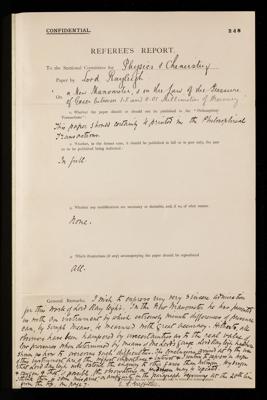 CONFIDENTIAL.
248
REFEREE'S REPORT.
To the Sectional Committee for Physics & Chemistry
Paper by Lord Rayleigh
On "a New Manometer, & on the Law of the Pressure
of Gases between 1.5 and 0.01 Millimetres of Mercury
1. Whether the paper should or should not be published in the "Philosophical
Transactions"
This paper should certainly be printed in the Philosophical
Transactions.
2. Whether, in the former case, it should be published in full or in part only, the part
or to be published being indicated.
In full
3. Whether any modifications are necessary or desirable, and, if so, of what nature.
None.
4. Which illustrations (if any) accompanying the paper should be reproduced
All.
General Remarks. I wish to express my very sincere admiration
for this work of Lord Rayleigh. In the New Manometer he has provided
us with an instrument by which extremely minute differences of pressure
can, by simple means, be measured with great accuracy. Hitherto, all
observers have been hampered by uncertainties as to the real value of
low pressures when determined by means of the McLeod gauge. Lord Rayleigh has
shown us how to overcome such difficulties.